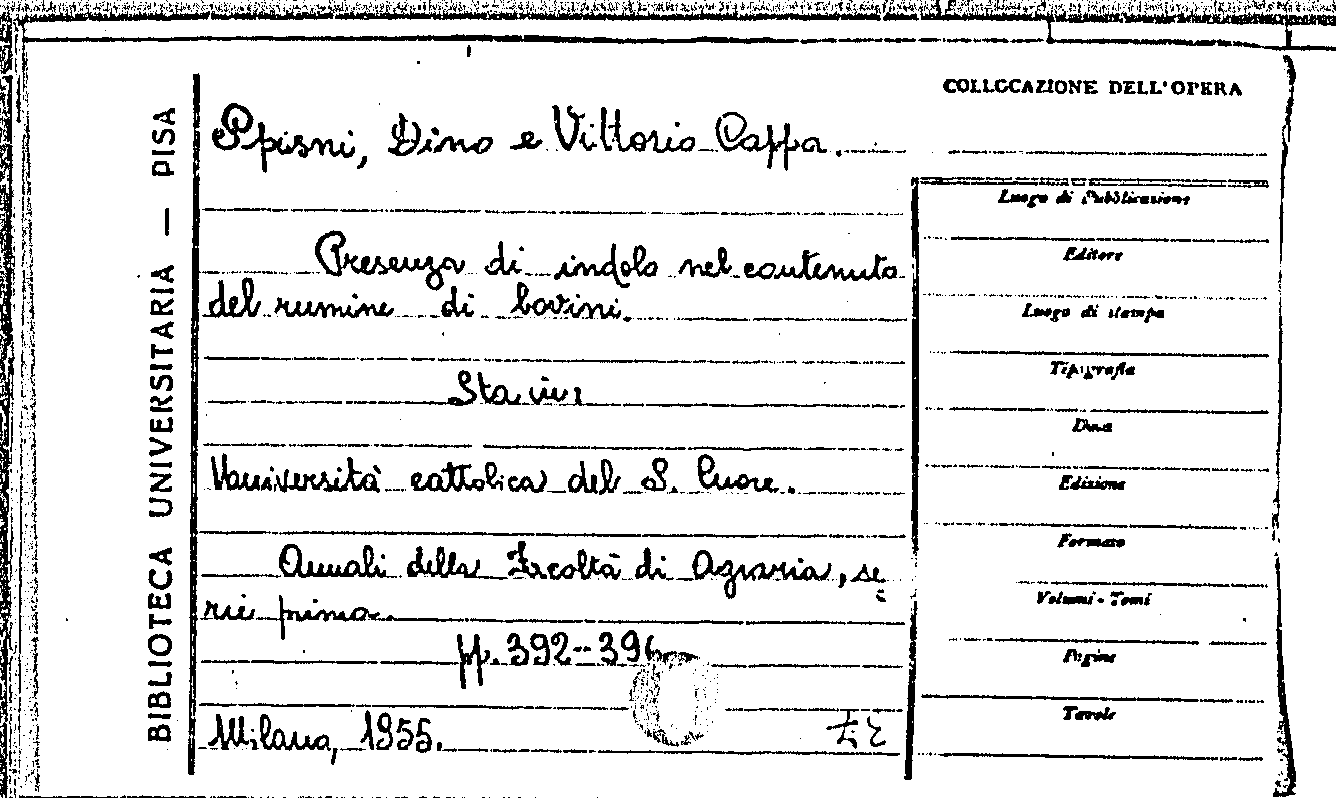 BIBLIOTECA UNIVERSITARIA — PISA
Ppisni, Dino e Vittorio Cappa.
Presenza di indolo nel contenuto
del rumine di bovini.
Sta in:
Università cattolica del S. Cuore.
Annali della Facoltà di Agraria, se
rie prima.
pp. 392-396
Milano, 1955.
COLLOCAZIONE DELL'OPERA
Luogo di Pubblicazione
Editore
Luogo di stampa
Tipografia
Data
Edizione
Formato
Volumi - Tomi
Pagine
Tavole